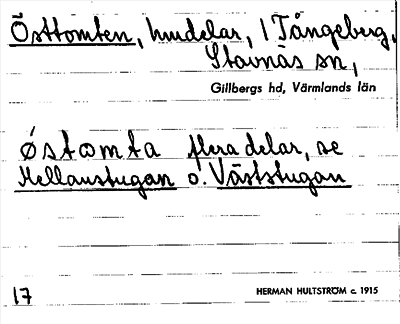 Östtomten, hmdelar, i Tångeberg,
Stavnäs sn,
Gillbergs hd, Värmlands län
östωmta flera delar, se
Mellanstugan o. Väststugan
17
HERMAN HULTSTRÖM c. 1915